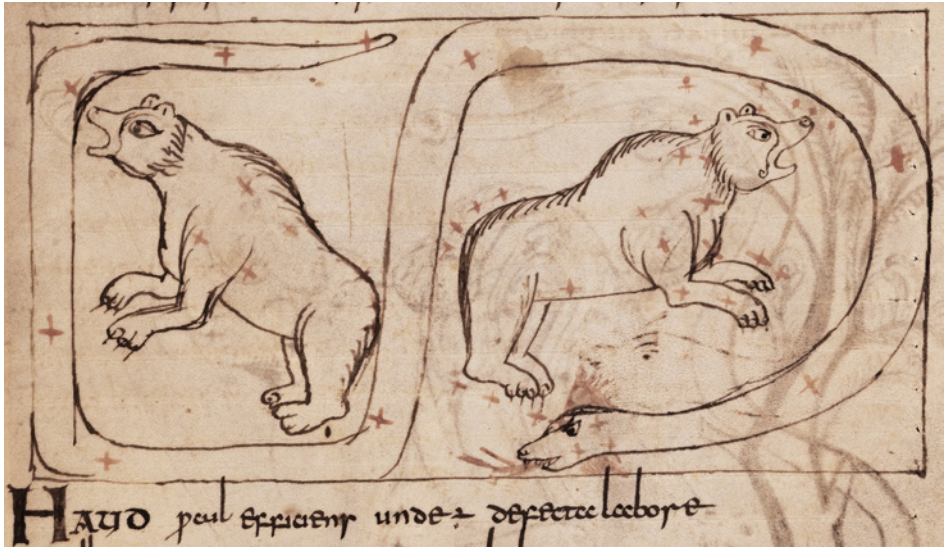 HAUD ꝓcul efficiens unde ÷ defecta labore